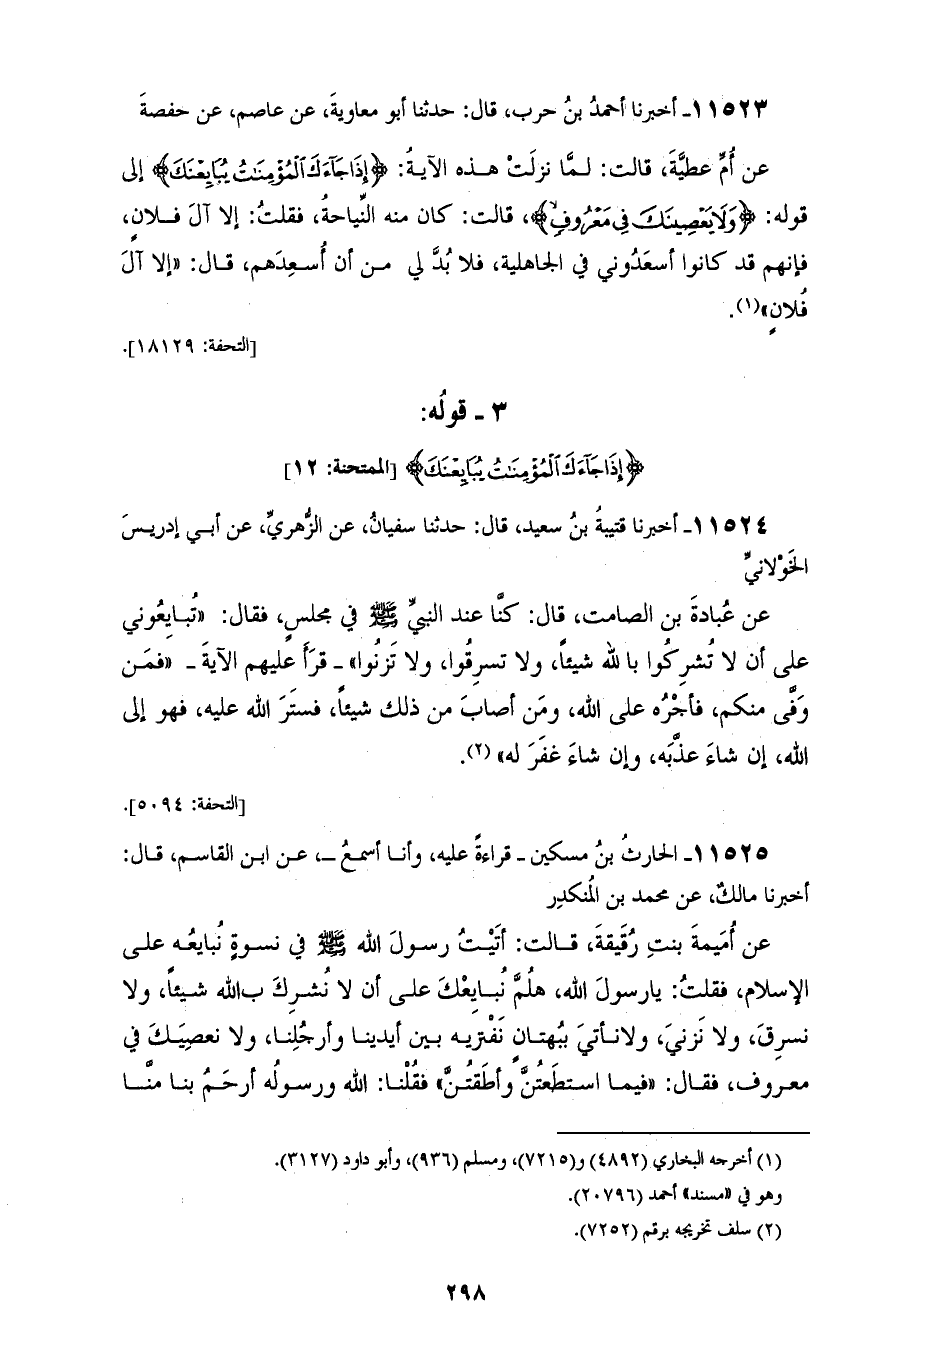 ١١٥٢٣ـ أخبرنا أحمدُ بنُ حرب، قال: حدثنا أبو معاويةَ، عن عاصم، عن حفصةَ
عن أُمِّ عطيَّةَ، قالت: لـمَّا نزلَتْ هـذه الآيةُ: ﴿إِذَا جَآءَكَ ٱلْمُؤْمِنَٰتُ يُبَايِعْنَكَ﴾ إلى
قوله: ﴿وَلَا يَعْصِينَكَ فِي مَعْرُوفٍ﴾، قالت: كان منه النِّياحةُ، فقلتُ: إلا آلَ فـلانٍ،
فإنهم قد كانوا أسعَدُوني في الجاهلية، فلا بُدَّ لي من أن أُسـعِدَهم، قـال: «إلا آلَ
فُلانٍ»(١).
[التحفة: ١٨١٢٩].
٣ ـ قولُه:
﴿إِذَا جَآءَكَ ٱلْمُؤْمِنَٰتُ يُبَايِعْنَكَ﴾ [الممتحنة: ١٢]
١١٥٢٤ـ أخبرنا قتيبةُ بنُ سعيد، قال: حدثنا سفيانُ، عن الزُّهريِّ، عن أبـي إدريـسَ
الخَوْلانيِّ
عن عُبادةَ بن الصامت، قال: كنَّا عند النبيِّ ﷺ في مجلسٍ، فقال: «تُبـايِعُوني
على أن لا تُشرِكُوا بالله شيئاً، ولا تسرِقُوا، ولا تَزنُوا» ـ قرَأَ عليهم الآيةَ ـ «فمَـن
وَفَّى منكم، فأجْرُه على الله، ومَن أصابَ من ذلك شيئاً، فستَرَ الله عليه، فهو إلى
الله، إن شاءَ عذَّبَه، وإن شاءَ غفَرَ له» (٢).
[التحفة: ٥٠٩٤].
١١٥٢٥ـ الحارثُ بنُ مسكين ـ قراءةً عليه، وأنـا أسمـعُ ـ، عـن ابن القاسم، قـال:
أخبرنا مالكٌ، عن محمد بن المُنكدِر
عن أُمَيمةَ بنتِ رُقَيقةَ، قـالت: أتَيْـتُ رسـولَ الله ﷺ في نسـوةٍ نُبايعُـه علـى
الإسلام، فقلتُ: يارسولَ الله، هلُمَّ نُبـايعْكَ علـى أن لا نُشـرِكَ بالله شـيئاً، ولا
نسرِقَ، ولا نَزنيَ، ولانـأتيَ ببُهتـانٍ نَفْتريـه بـين أيدينـا وأرجُلِنـا، ولا نعصِيَـكَ في
معـروف، فقـال: «فيمـا اسـتطَعتُنَّ وأطَقتُـنَّ» فقُلْنـا: الله ورسـولُه أرحَـمُ بنـا منَّـا
(١) أخرجه البخاري (٤٨٩٢) و(٧٢١٥)، ومسلم (٩٣٦)، وأبو داود (٣١٢٧).
وهو في «مسند» أحمد (٢٠٧٩٦).
(٢) سلف تخريجه برقم (٧٢٥٢).
٢٩٨